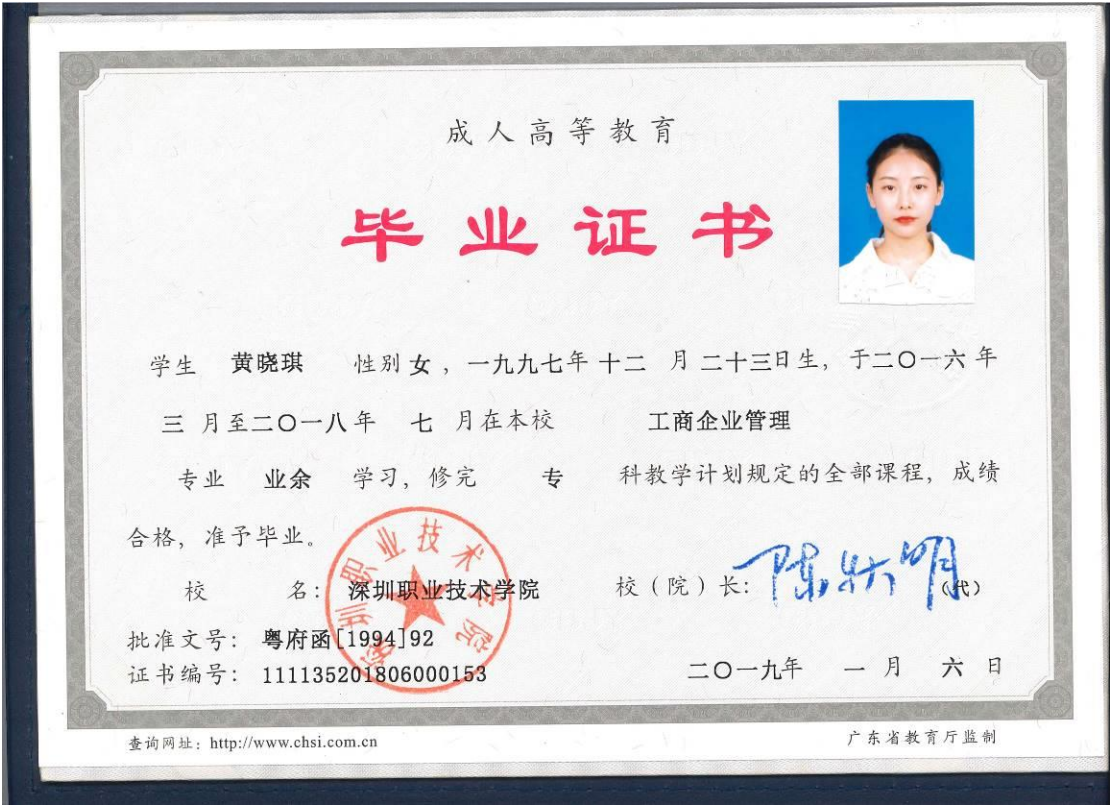 成人高等教育
毕业证书
学生 黄晓琪 性别 女 ，一九九七年 十二 月 二十三日生，于二〇一六 年
三 月至二〇一八年 七 月在本校 工商企业管理
专业 业余 学习，修完 专 科教学计划规定的全部课程，成绩
合格，准予毕业。
校 名：深圳职业技术学院 校（院）长： （代）
批准文号：粤府函[1994]92
证书编号：111135201806000153
二〇一九年 一 月 六 日
深圳职业技术学院
查询网址：http://www.chsi.com.cn 广东省教育厅监制